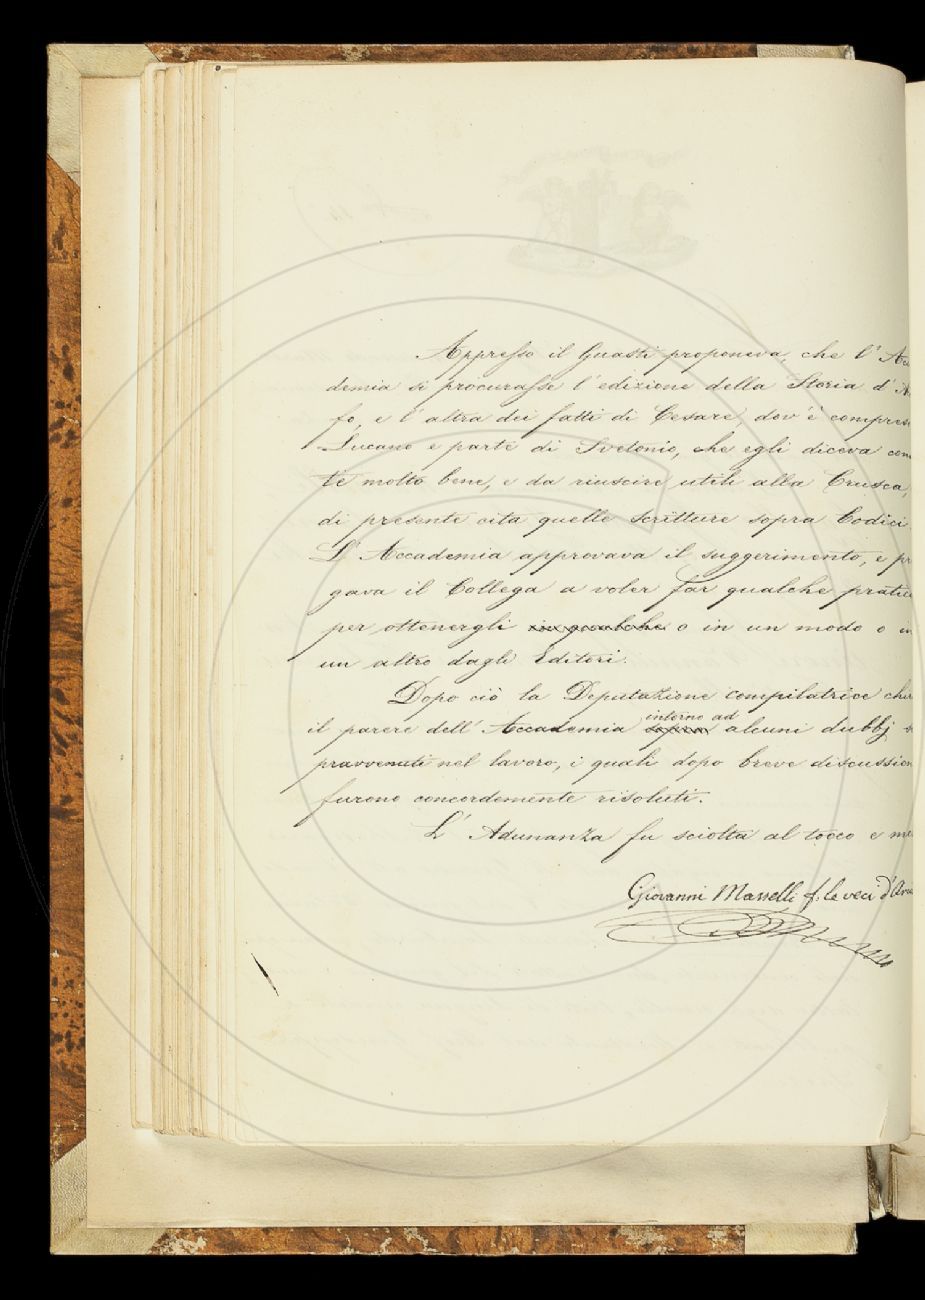 Appresso il Guasti proponeva, che l'Ac
demia si procurasse l'edizione della Storia d'A
fo, e l'altra dei fatti di Cesare, dov'è compres
Lucano e parte di Svetonio, che egli diceva con
te molto bene, e da riuscire utili alla Crusca,
di presente cita quelle scritture sopra Codici
L'Accademia approvava il suggerimento, e pr
gava il Collega a voler far qualche pratic
per ottenergli in qualche o in un modo o in
un altro dagli Editori.
Dopo ciò la Deputazione compilatrice chie
il parere dell'Accademia intorno ad sopra alcuni dubbj s
pravvenuti nel lavoro, i quali dopo breve discussion
furono concordemente risoluti.
L'Adunanza fu sciolta al tocco e me
Giovanni Masselli f. le veci d'Arci